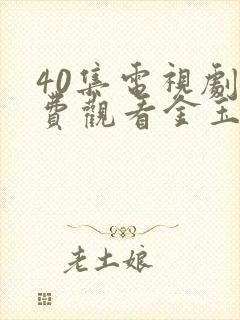 40集電視劇
費觀看金玉
老土娘